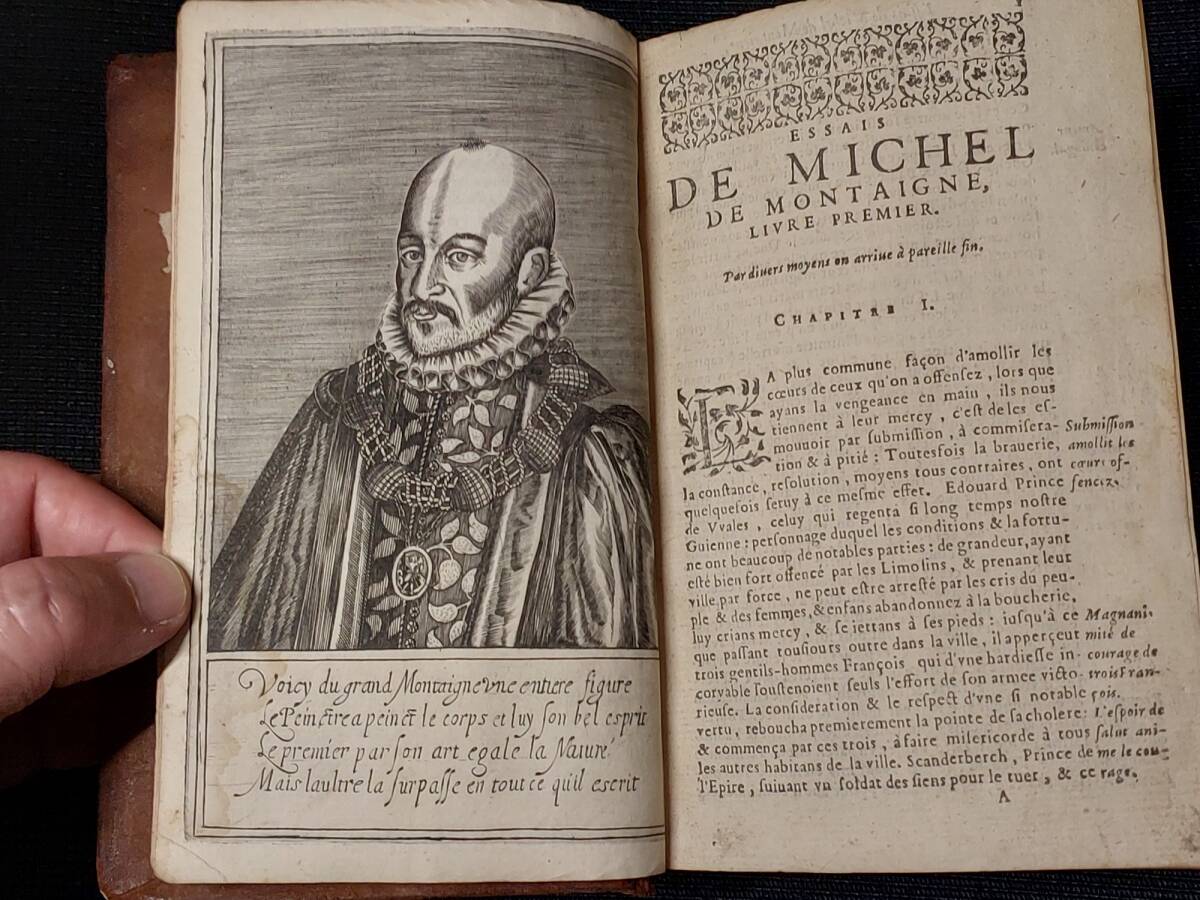 Voicy du grand Montaigne vne entiere figure
Le Peinctre a peinct le corps et luy son bel esprit
Le premier par son art egale la Nature
Mais laultre la surpasse en tout ce quil escrit
ESSAIS
DE MICHEL
DE MONTAIGNE,
LIVRE PREMIER.
Par diuers moyens on arriue à pareille fin.
CHAPITRE I.
LA plus commune façon d'amollir les
cœurs de ceux qu'on a offensez, lors que
ayans la vengeance en main, ils nous
tiennent à leur mercy, c'est de les eſ-
mouuoir par ſubmiſſion, à commiſera-
tion & à pitié : Toutesfois la brauerie,
la conſtance, reſolution, moyens tous contraires, ont
quelquefois ſeruy à ce meſme effet. Edouard Prince
de Vvales, celuy qui regenta ſi long temps noſtre
Guienne : perſonnage duquel les conditions & la fortu-
ne ont beaucoup de notables parties : de grandeur, ayant
eſté bien fort offencé par les Limoſins, & prenant leur
ville par force, ne peut eſtre arreſté par les cris du peu-
ple & des femmes, & enfans abandonnez à la boucherie,
luy crians mercy, & ſe iettans à ſes pieds : iuſqu'à ce
que paſſant touſiours outre dans la ville, il apperçeut
trois gentils-hommes François qui d'vne hardieſſe in-
corvable ſouſtenoient ſeuls l'effort de ſon armee victo-
rieuſe. La conſideration & le reſpect d'vne ſi notable
vertu, reboucha premierement la pointe de ſa cholere :
& commença par ces trois, à faire miſericorde à tous
les autres habitans de la ville. Scanderberch, Prince de
l'Epire, ſuiuant vn ſoldat des ſiens pour le tuer, & ce
Submiſſion
amollit les
cœurs of-
fencez.
Magnani-
mité de
courage de
trois Fran-
çois.
L'eſpoir de
ſalut ani-
me le cou-
rage.
A